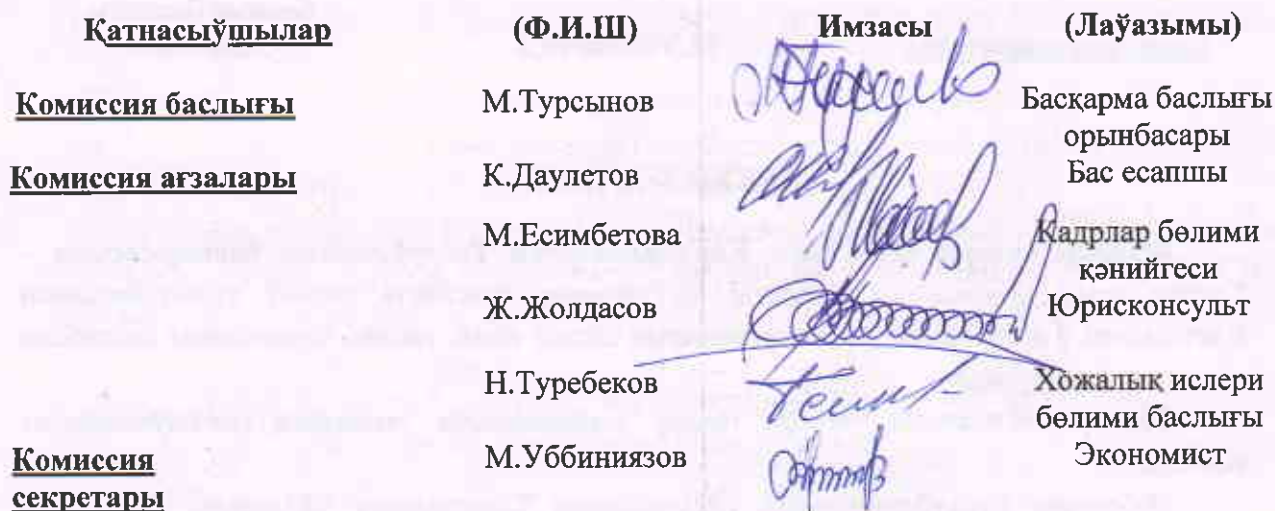 Қатнасыўшылар (Ф.И.Ш) Имзасы (Лаўазымы)
Комиссия баслығы М.Турсынов Басқарма баслығы
орынбасары
Комиссия ағзалары К.Даулетов Бас есапшы
М.Есимбетова Кадрлар бөлими
қәнийгеси
Ж.Жолдасов Юрисконсульт
Н.Туребеков Хожалық ислери
бөлими баслығы
Комиссия М.Уббиниязов Экономист
секретары